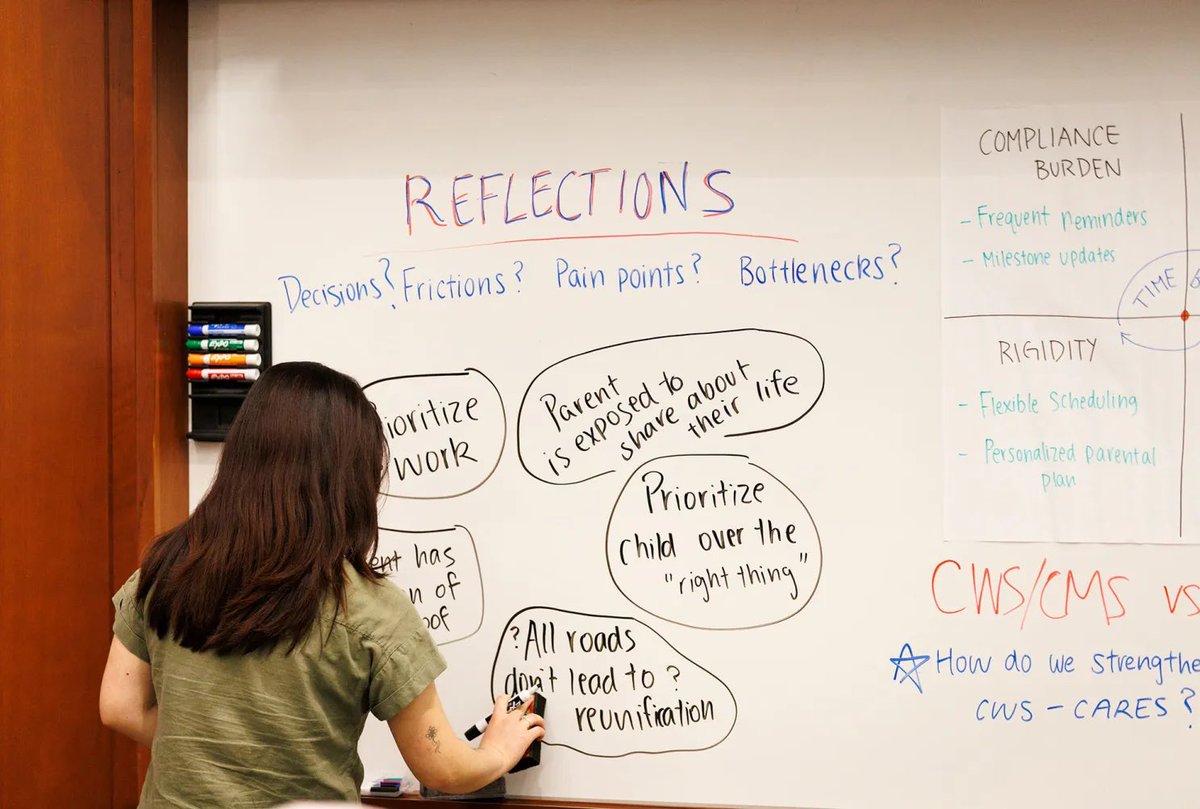 REFLECTIONS
Decisions? Frictions? Pain points? Bottlenecks?
ioritize
work
Parent
is exposed to
share about
their life
Prioritize
child over the
"right thing"
ent has
n of
oof
?All roads
don't lead to ?
reunification
COMPLIANCE
BURDEN
- Frequent reminders
- Milestone updates
TIME
RIGIDITY
- Flexible Scheduling
- Personalized parental
plan
CWS/CMS vs
How do we strengthe
CWS - CARES?